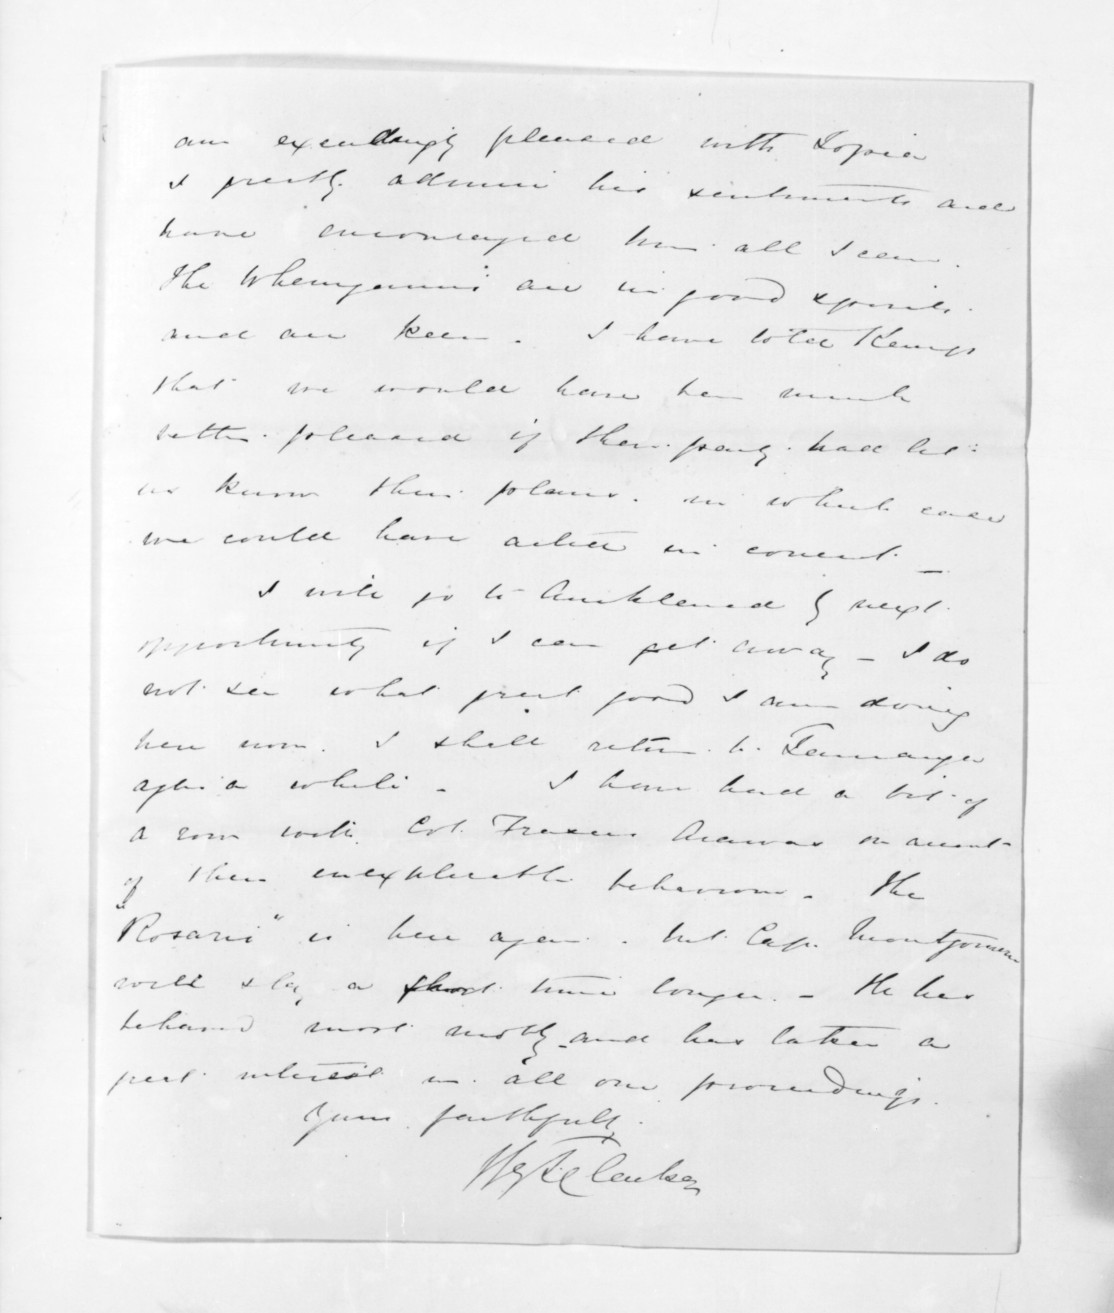 am exceedingly pleased with Topia
I greatly admire his sentiments and
have encouraged him all I can.
The Whanganuis are in good spirits
and are keen. I have told Kemp
that we would have been much
better pleased if their party had let
us know their plans. in which case
we could have acted in concert –
I will go to Auckland by next
opportunity if I can get away – I do
not see what great good I am doing
here now. I shall return to Tauranga
after a while – I have had a bit of
a row with Col. Frasers Arawas on account
of their inexplicable behaviour – The
"Rosario" is here again. but Capt. Montgomerie
will stay a short time longer. – He has
behaved most nobly and has taken a
great interest in all our proceedings.
Yours faithfully
Hy T Clarke